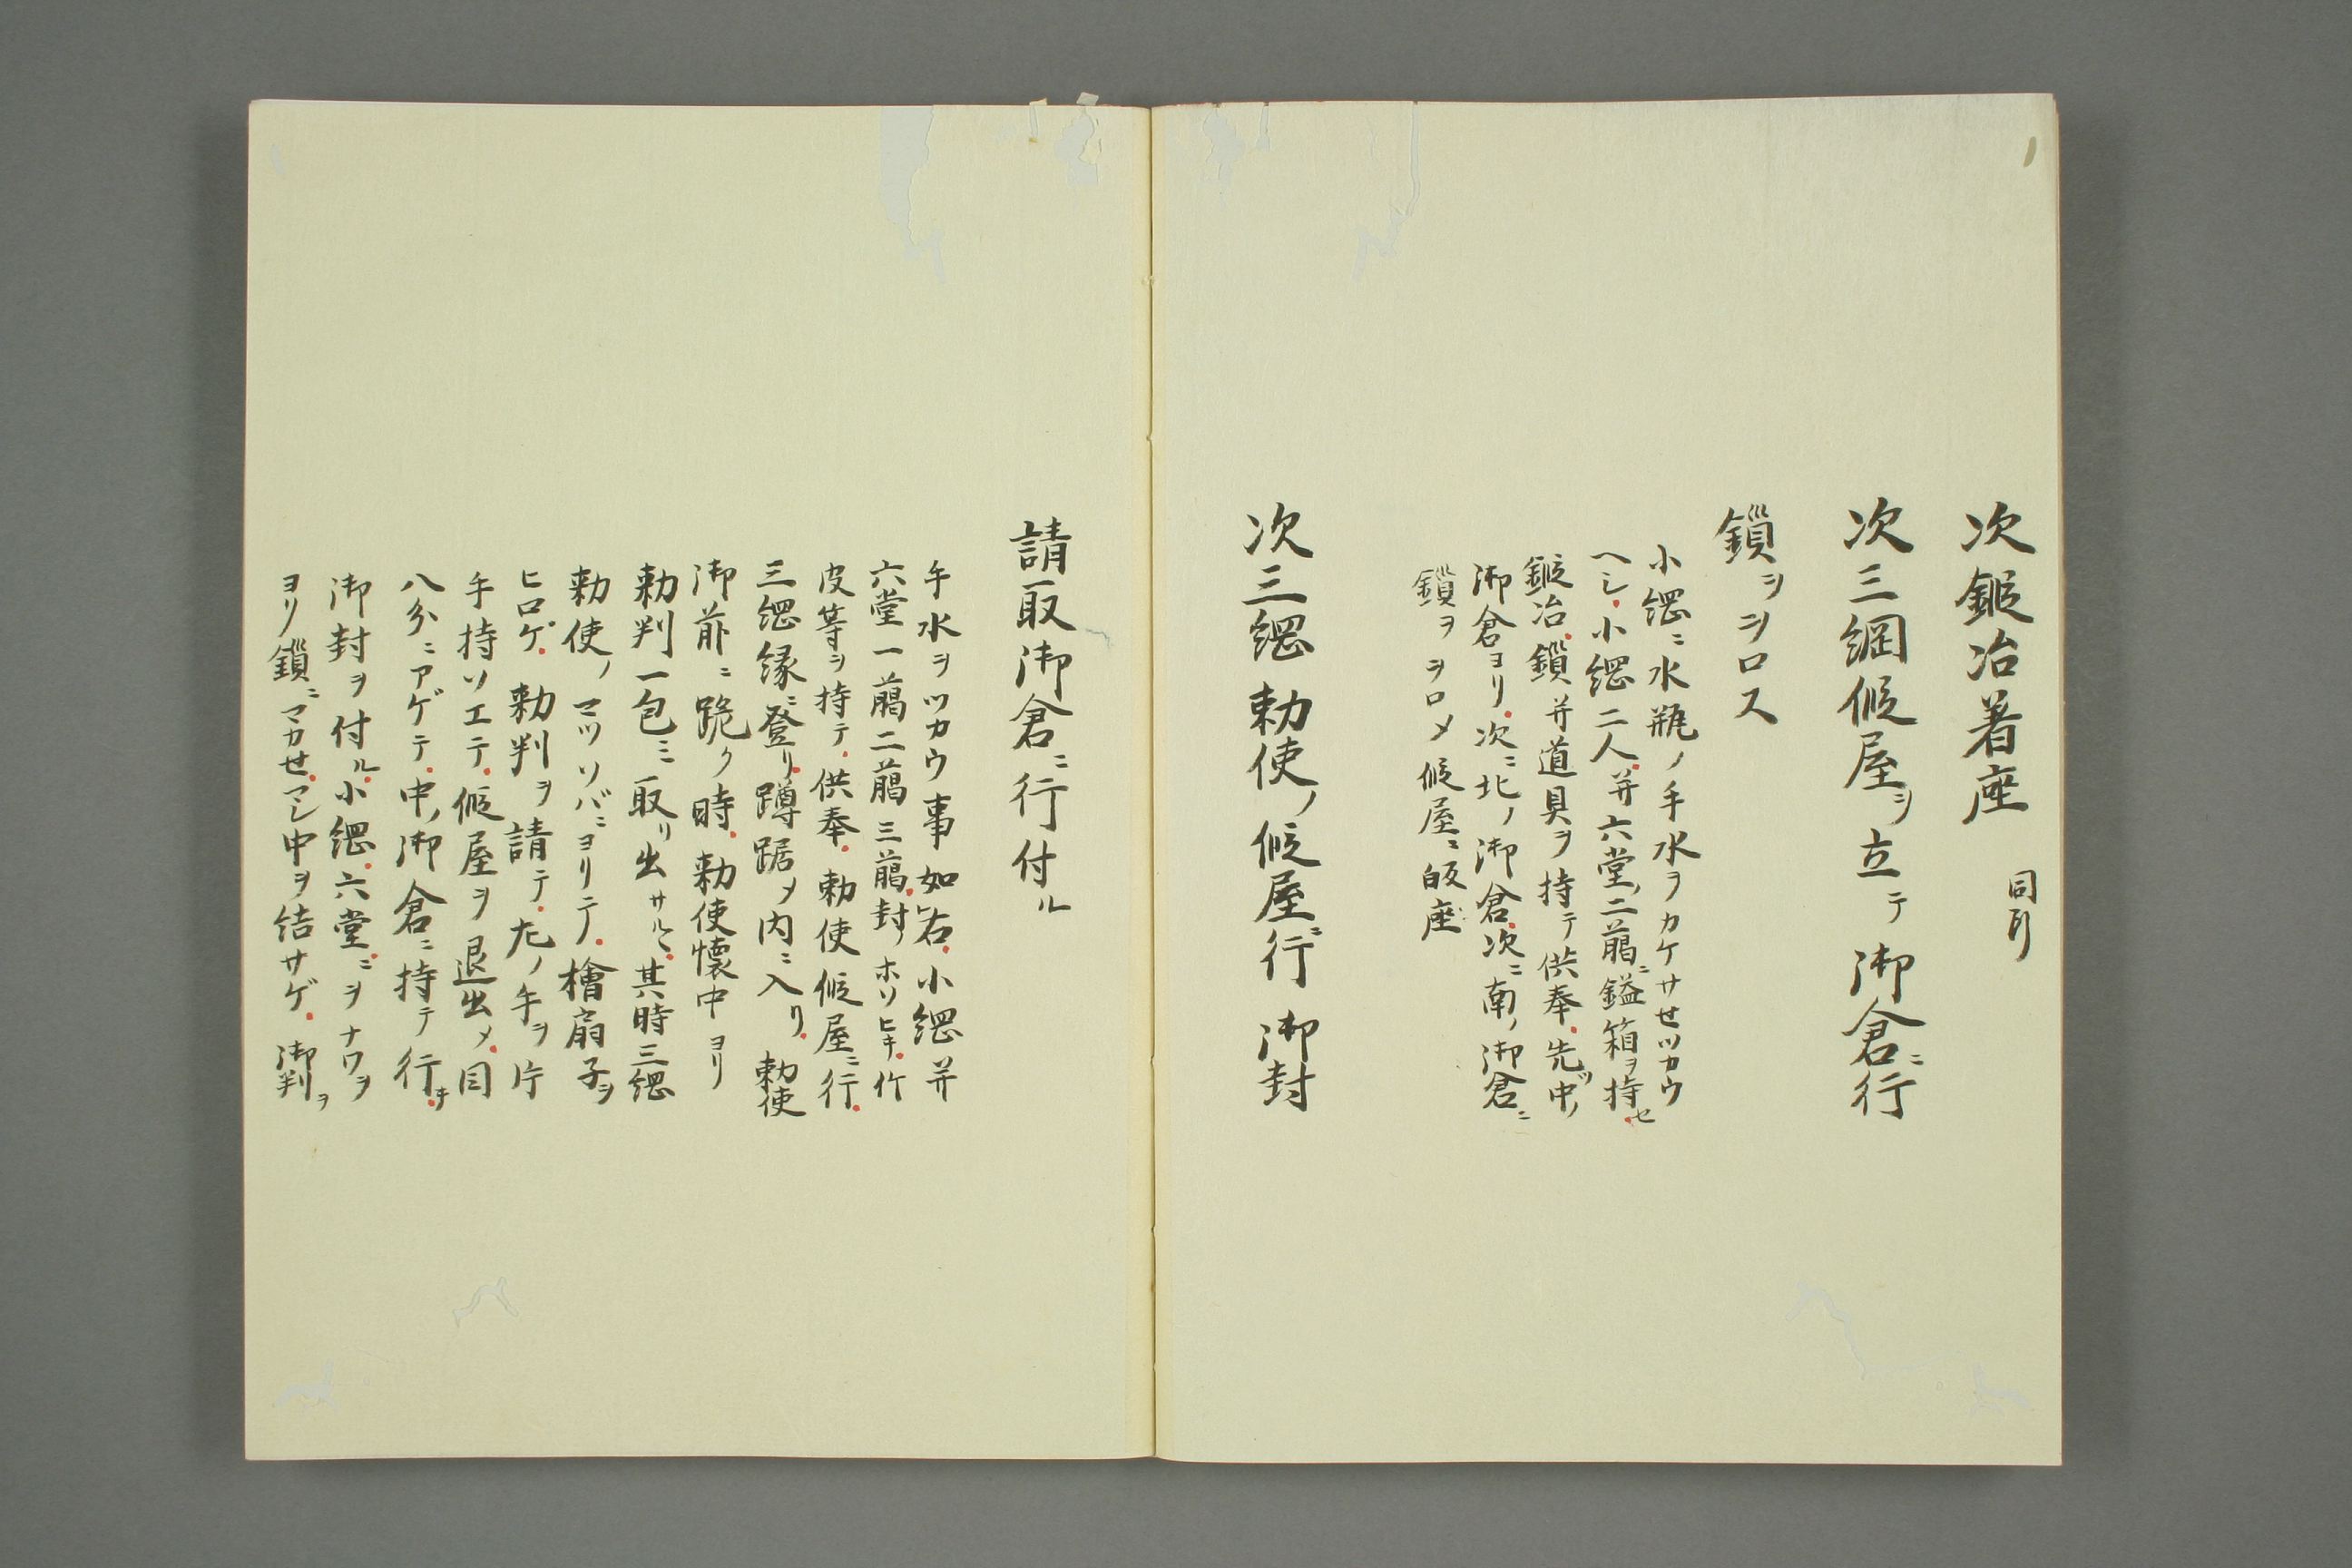 次鍛冶著座 同列
次三綱假屋ヲ立テ御倉ニ行
鎖ヲヲロス
小綱ニ水瓶ノ手水ヲカケサせツカウ
ヘシ小綱二人并六堂ノ二﨟ニ鎰箱ヲ持セ
鍛冶鎖并道具ヲ持テ供奉先ツ中ノ
御倉ヨリ次ニ北ノ御倉次ニ南ノ御倉ニ
鎖ヲヲロメ假屋ニ皈座
次三綱勅使ノ假屋ニ行御封
請取御倉ニ行付ル
手水ヲツカウ事如右小綱并
六堂一﨟二﨟三﨟封ノホソヒキ竹
皮等ヲ持テ供奉勅使假屋ニ行
三綱縁ニ登リ蹲踞メ内ニ入リ勅使
御前ニ跪ク時勅使懐中ヨリ
勅判一包ミ取リ出サルヽ其時三綱
勅使ノマツソバニヨリテ檜扇子ヲ
ヒロゲ勅判ヲ請テ左ノ手ヲ片
手持ソエテ假屋ヲ退出メ目
八分ニアゲテ中ノ御倉ニ持テ行キ
御封ヲ付ル小綱六堂ニヲナワヲ
ヨリ鎖ニマカせマシ中ヲ結サゲ御判ヲ